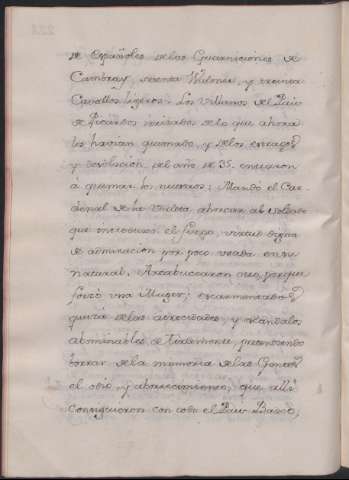 de Españoles de las Guarniciones de
Cambray, setenta Walones, y treinta
Cavallos ligeros: Los Villanos del Pais
de Picardos irritados de lo que ahora
les havian quemado, y de los estragos
y desolacion del año de 35. entraron
a quemar los nuestros; Mandó el Car-
denal de la Valeta ahorcar al soldado
que introdujo el fuego, virtud digna
de admiracion por poco usada en su
natural, Arcabucearon otro, porque
forzó una Muger; escarmentados
quizá de las atrocidades, y escandalos
abominables de Tirlemont, pretendiendo
borrar de la memoria de las Gentes
el odio, y aborrecimiento, que alli
consiguieron con todo el Pais Baxo;